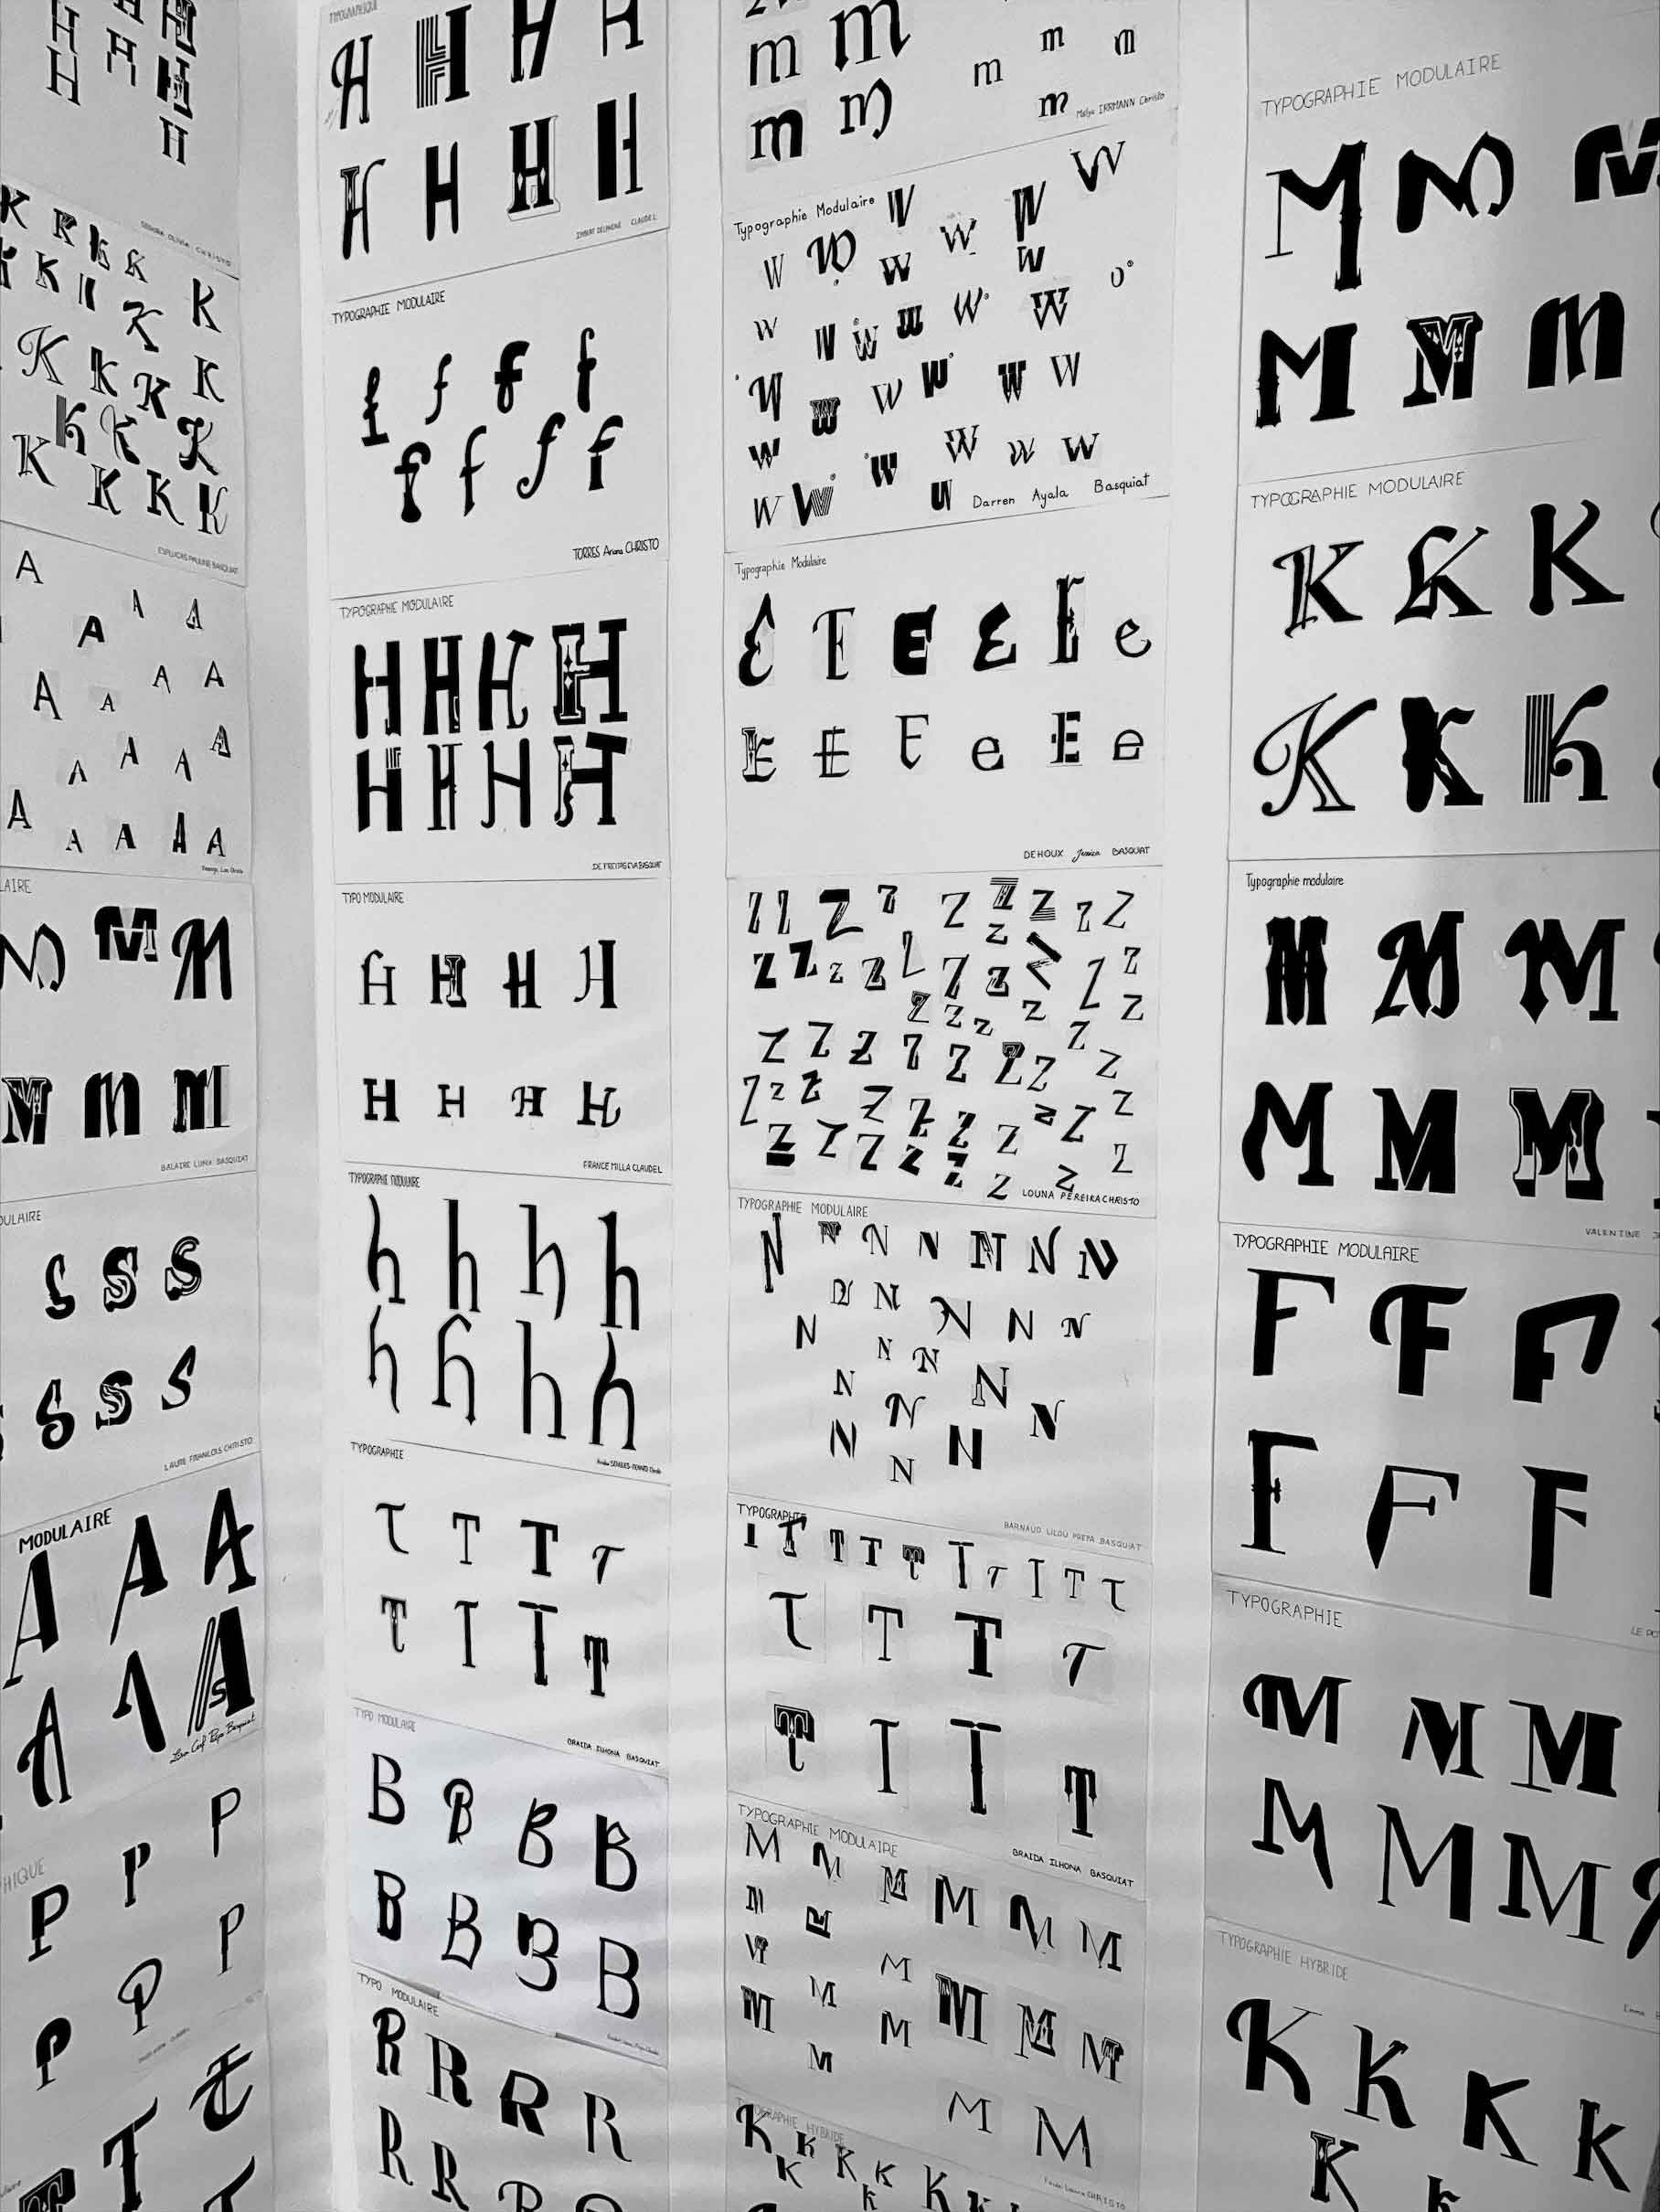 H
H H
H H
H
K K K K
K K K
K K
K K K K
K K K
K K K K
A
A A A
A A A A
A A A A
A A A A A
LAIRE
M M M
M M M
BALAIRE LUNA BASQUIAT
DULAIRE
S S S
S S S
LAURE FRANCOIS CHRISTO
MODULAIRE
A A A
A A A
HIQUE
P P P
P P P
T T
TYPOGRAPHIQUE
H H H H
H H H H
CLAUDEL
TYPOGRAPHIE MODULAIRE
f f f f
f f f f
TORRES Ariana CHRISTO
TYPOGRAPHIE MODULAIRE
H H H H
H H H H
TYPO MODULAIRE
H H H H
H H H H
FRANCE MILLA CLAUDEL
TYPOGRAPHIE MODULAIRE
h h h h
h h h h
TYPOGRAPHIE
T T T T
T T T T
BRAIDA ILHONA BASQUIAT
TYPO MODULAIRE
B B B B
B B B B
TYPO MODULAIRE
R R R R
R R R R
m m m m
m m m m
Melya IRRMANN Christo
Typographie Modulaire W W W
W W W W W
W W W W W W
W W W W W W
W W W W W
W W W
Darren Ayala Basquiat
Typographie Modulaire
E E E E E e
E E E e E e
DEHOUX Jessica BASQUIAT
Z Z Z Z Z Z Z Z Z
Z Z Z Z Z Z Z Z Z Z
Z Z Z Z Z
Z Z Z Z Z Z Z Z Z
Z Z Z Z Z Z Z Z Z
Z Z Z Z Z Z Z
Z Z Z
LOUNA PEREIRA CHRISTO
TYPOGRAPHIE MODULAIRE
N N N N N N N
N N N N N
N N N
N N N N
N N N
BARNAUD LILOU PREPA BASQUIAT
TYPOGRAPHIE
T T T T T T T T T T
T T T T
T T T T
BRAIDA ILHONA BASQUIAT
TYPOGRAPHIE MODULAIRE
M M M M M M
M M
M M M M M M
M M M
M M M
TYPOGRAPHIE HYBRIDE
K K K K K
K K
TYPOGRAPHIE MODULAIRE
M M M
M M M
TYPOGRAPHIE MODULAIRE
K K K
K K K
Typographie modulaire
M M M
M M M
VALENTINE
TYPOGRAPHIE MODULAIRE
F F F
F F F
TYPOGRAPHIE
M M M
M M M
TYPOGRAPHIE HYBRIDE
K K K K
K K